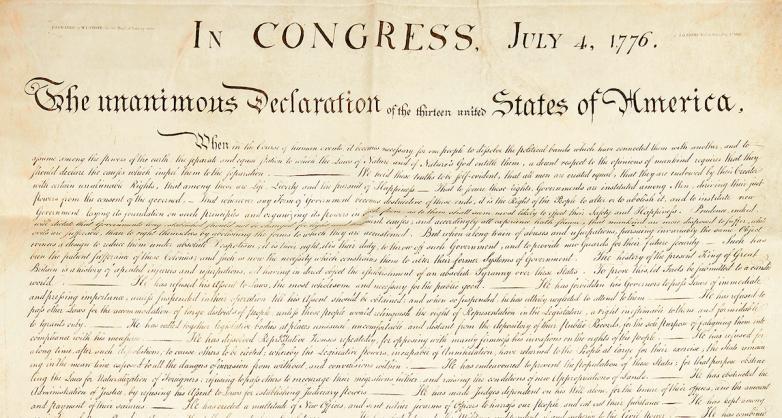 IN CONGRESS, JULY 4, 1776.
The unanimous Declaration of the thirteen united States of America,
When in the Course of human events, it becomes necessary for one people to dissolve the political bands which have connected them with another, and to
assume among the powers of the earth, the separate and equal station to which the Laws of Nature and of Nature's God entitle them, a decent respect to the opinions of mankind requires that they
should declare the causes which impel them to the separation. We hold these truths to be self-evident, that all men are created equal, that they are endowed by their Creator
with certain unalienable Rights, that among these are Life, Liberty and the pursuit of Happiness — That to secure these rights, Governments are instituted among Men, deriving their just
powers from the consent of the governed, — That whenever any Form of Government becomes destructive of these ends, it is the Right of the People to alter or to abolish it, and to institute new
Government, laying its foundation on such principles and organizing its powers in such form, as to them shall seem most likely to effect their Safety and Happiness. Prudence, indeed,
will dictate that Governments long established should not be changed for light and causes; and accordingly all experience hath shewn, that mankind are more disposed to suffer, while
evils are sufferable, than to right themselves by abolishing the forms to which they are accustomed. But when a long train of abuses and usurpations, pursuing invariably the same Object
evinces a design to reduce them under absolute Despotism, it is their right, it is their duty, to throw off such Government, and to provide new Guards for their future security. — Such has
been the patient sufferance of these Colonies; and such is now the necessity which constrains them to alter their former Systems of Government. The history of the present King of Great
Britain is a history of repeated injuries and usurpations, all having in direct object the establishment of an absolute Tyranny over these States. To prove this, let Facts be submitted to a candid
world. He has refused his Assent to Laws, the most wholesome and necessary for the public good. He has forbidden his Governors to pass Laws of immediate
and pressing importance, unless suspended in their operation till his Assent should be obtained; and when so suspended, he has utterly neglected to attend to them. He has refused to
pass other Laws for the accommodation of large districts of people, unless those people would relinquish the right of Representation in the Legislature, a right inestimable to them and formidable
to tyrants only. He has called together legislative bodies at places unusual, uncomfortable, and distant from the depository of their public Records, for the sole purpose of fatiguing them into
compliance with his measures. He has dissolved Representative Houses repeatedly, for opposing with manly firmness his invasions on the rights of the people. He has refused for
a long time, after such dissolutions, to cause others to be elected; whereby the Legislative powers, incapable of Annihilation, have returned to the People at large for their exercise; the State remain
ing in the mean time exposed to all the dangers of invasion from without, and convulsions within. He has endeavoured to prevent the population of these States; for that purpose obstruc
ting the Laws for Naturalization of Foreigners; refusing to pass others to encourage their migrations hither, and raising the conditions of new Appropriations of Lands. He has obstructed the
Administration of Justice, by refusing his Assent to Laws for establishing Judiciary powers. He has made Judges dependent on his Will alone, for the tenure of their offices, and the amount
and payment of their salaries. He has erected a multitude of New Offices, and sent hither swarms of Officers to harrass our people, and eat out their substance. He has kept among